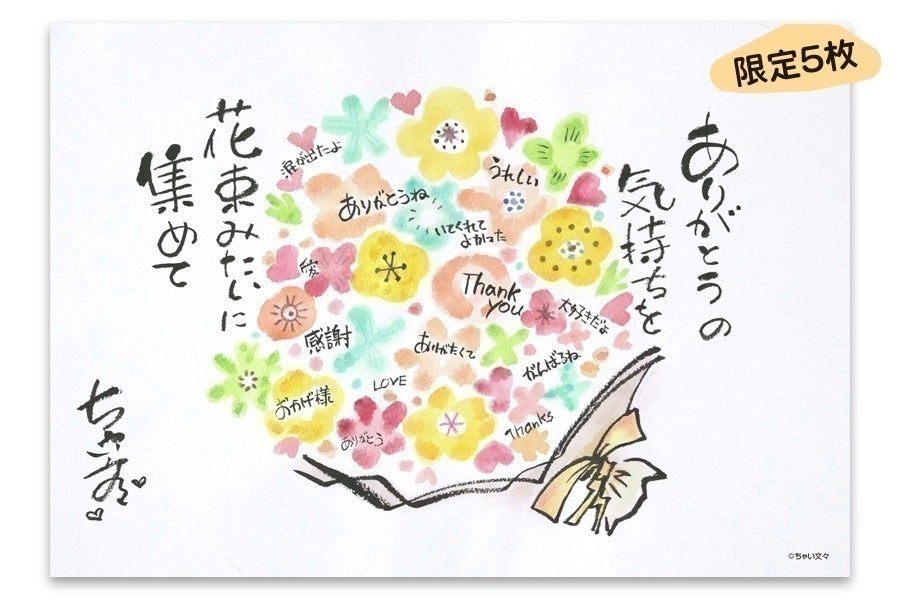 限定5枚
ありがとうの
気持ちを
花束みたいに
集めて
涙が出たよ
うれしい
ありがとうね
いてくれて
よかった
愛
Thank
you
大好きだよ
感謝
ありがたくて
がんばるね
LOVE
おかげ様
ありがとう
Thanks
ちゃい文々
©ちゃい文々